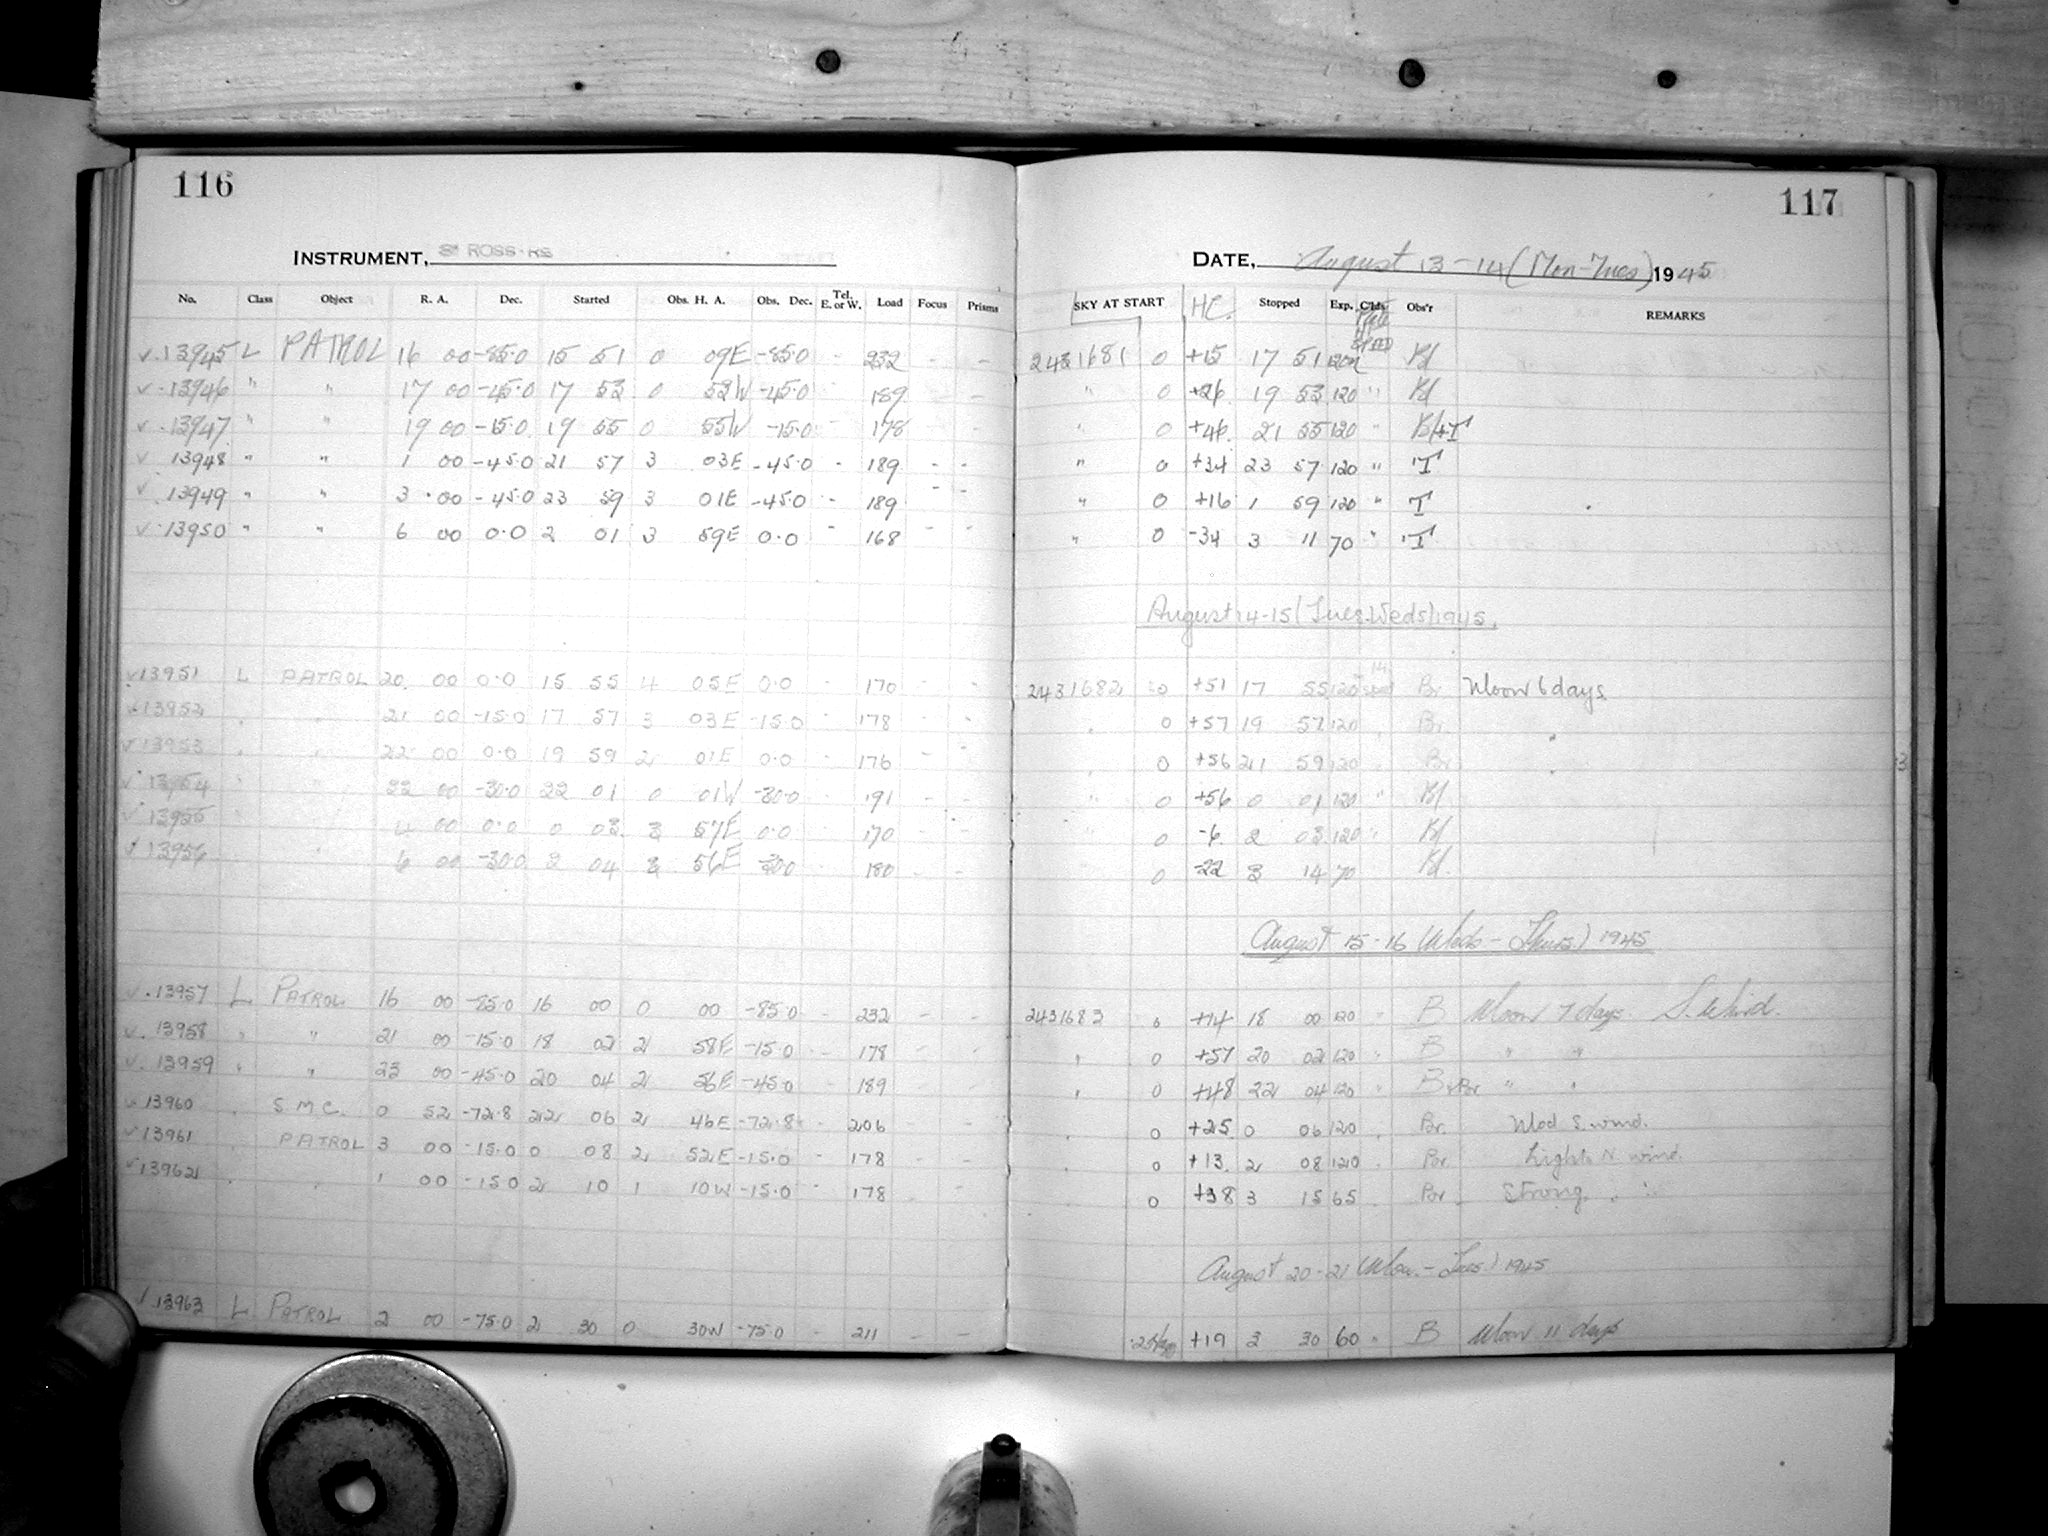 116
INSTRUMENT, ROSS-RS
No. Class Object R. A. Dec. Started Obs. H. A. Obs. Dec. Tel. E. or W. Load Focus Prisms
✓ 13945 L PATROL 16 00 -85.0 15 51 0 09E -85.0 - 232 - -
✓ 13946 " " 17 00 -45.0 17 53 0 53W -45.0 - 189 - -
✓ 13947 " " 19 00 -15.0 19 55 0 55W -15.0 - 178 -
✓ 13948 " " 1 00 -45.0 21 57 3 03E -45.0 - 189 - -
✓ 13949 " " 3 00 -45.0 23 59 3 01E -45.0 - 189 - -
✓ 13950 " " 6 00 0.0 2 01 3 59E 0.0 - 168 - -
✓ 13951 L PATROL 20 00 0.0 15 55 4 05E 0.0 - 170 - -
✓ 13952 " " 21 00 -15.0 17 57 3 03E -15.0 - 178 - -
✓ 13953 " " 22 00 0.0 19 59 2 01E 0.0 - 176 - -
✓ 13954 " " 22 00 -30.0 22 01 0 01W -30.0 - 191 - -
✓ 13955 " 4 00 0.0 0 03 3 57E 0.0 - 170 - -
✓ 13956 " 6 00 -30.0 2 04 3 56E -30.0 180 - -
✓ 13957 L PATROL 16 00 -85.0 16 00 0 00 -85.0 - 232 - -
✓ 13958 " " 21 00 -15.0 18 02 2 58E -15.0 - 178 - -
✓ 13959 " " 23 00 -45.0 20 04 2 56E -45.0 - 189 - -
✓ 13960 " S M C. 0 52 -72.8 22 06 2 46E -72.8 - 206 - -
✓ 13961 " PATROL 3 00 -15.0 0 08 2 52E -15.0 - 178 - -
✓ 13962 " " 1 00 -15.0 2 10 1 10W -15.0 - 178 - -
✓ 13963 L PATROL 2 00 -75.0 2 30 0 30W -75.0 - 211 - -
117
DATE, August 13-14 (Mon-Tues) 1945
SKY AT START HC. Stopped Exp. C'lds. Obs'r REMARKS
2431681 0 +15 17 51 120 Bl
" 0 +26 19 53 120 " Bl
" 0 +46 21 55 120 " Bl+T
" 0 +34 23 57 120 " T
" 0 +16 1 59 120 " T
" 0 -34 3 11 70 " T
August 14-15 (Tues-Weds) 1945.
2431682 0 +51 17 55 120 Br. Moon 6 days
" 0 +57 19 57 120 " Br. "
" 0 +56 21 59 120 " Br "
" 0 +56 0 01 120 " Bl
0 -6 2 03 120 " Bl
0 -22 3 14 70 Bl.
August 15-16 (Weds-Thurs.) 1945
2431683 0 +14 18 00 120 " B Moon 7 days S. Wind.
" 0 +57 20 02 120 " B " "
" 0 +48 22 04 120 " B+Br " "
" 0 +25 0 06 120 " Br. Mod S. wind.
" 0 +13 2 08 120 " Br. Light N wind.
0 +38 3 15 65 Br. Strong " "
August 20-21 (Mon.-Tues.) 1945
+19 3 30 60 " B Moon 11 days